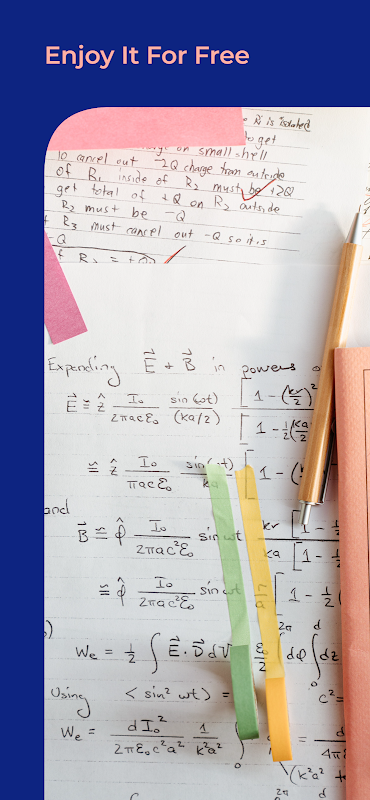 Enjoy It For Free
is isolated
to get
on small shell
to cancel out -2Q charge from outside
of R₁ inside of R₂ must be +2Q
get total of +Q on R₂ outside
R₂ must be -Q
R₃ must cancel out -Q so it is
-Q
f R₂ =
Expending E⃗ + B⃗ in powers o
E⃗ ≅ ẑ I₀/2πacε₀ sin(ωt)/(ka/2) [1 - (kr/2)²
[1 - ½(ka
≅ ẑ I₀/πacε₀ sin(ωt)/ka [1 - (
and
B⃗ ≅ φ̂ I₀/2πac²ε₀ sin ωt kr/ka [1 -
[1 - ½
≅ φ̂ I₀/2πac²ε₀ sin ωt [1 - ½
We = ½ ∫ E⃗ · D⃗ dV ε₀/2 ∫ dφ ∫ dz
Using < sin² ωt > = c² =
We = d I₀²/2πε₀c²a² 1/k²a² = d/4π
(k²a²